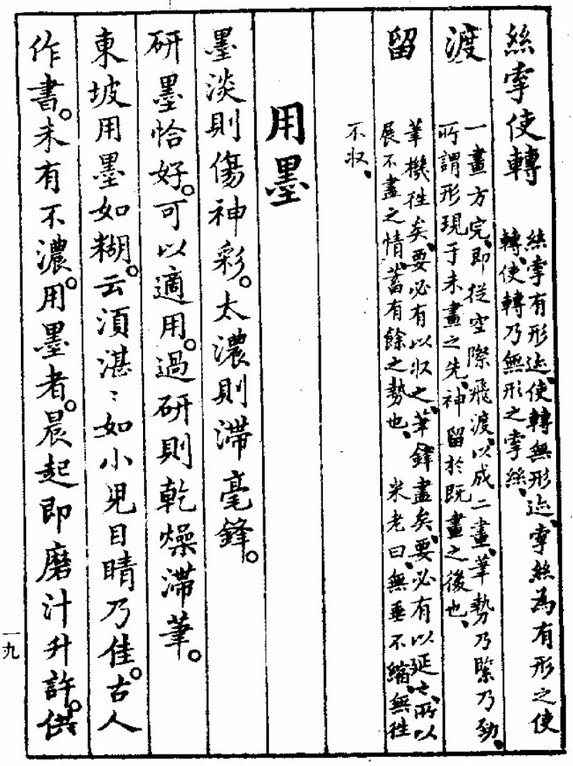 絲牽使轉
絲牽有形迹、使轉無形迹、牽絲為有形之使
轉、使轉乃無形之牽絲、
渡
一畫方完、即從空際飛渡、以成二畫、筆勢乃緊乃勁、
所謂形現于未畫之先、神留於既畫之後也、
留
筆機往矣、要必有以収之、筆鋒盡矣、要必有以延之、所以
展不盡之情、蓄有餘之勢也、　米老曰、無垂不縮、無往
不収、
用墨
墨淡則傷神彩。太濃則滯毫鋒。
研墨恰好。可以適用。過研則乾燥滯筆。
東坡用墨如糊。云須湛〻如小兒目睛乃佳。古人
作書。未有不濃。用墨者。晨起即磨汁升許。供
一九